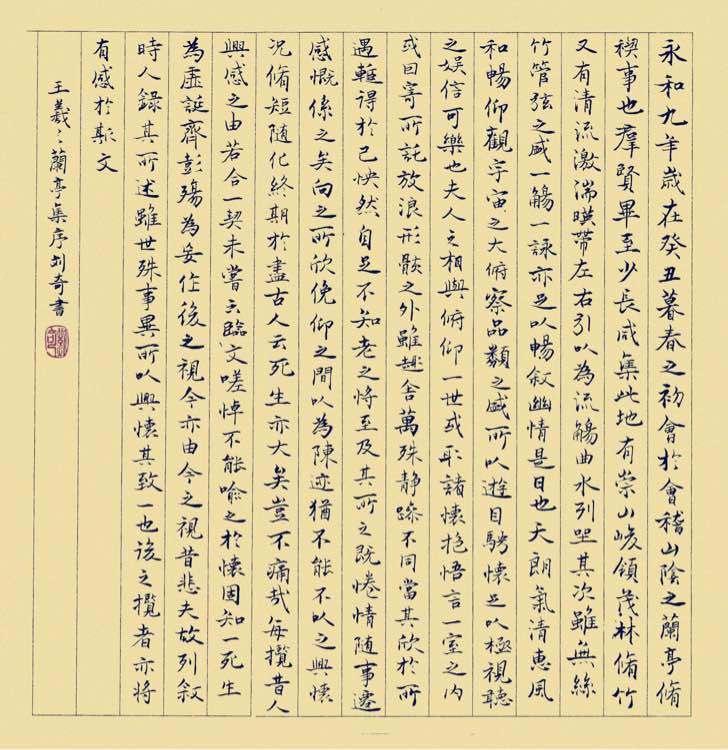 永和九年歲在癸丑暮春之初會於會稽山陰之蘭亭脩
禊事也羣賢畢至少長咸集此地有崇山峻領茂林脩竹
又有清流激湍暎帶左右引以為流觴曲水列坐其次雖無絲
竹管弦之盛一觴一詠亦足以暢叙幽情是日也天朗氣清惠風
和暢仰觀宇宙之大俯察品類之盛所以遊目騁懷足以極視聽
之娛信可樂也夫人之相與俯仰一世或取諸懷抱悟言一室之內
或因寄所託放浪形骸之外雖趣舍萬殊静躁不同當其欣於所
遇暫得於己怏然自足不知老之將至及其所之既惓情隨事遷
感慨係之矣向之所欣俛仰之間以為陳迹猶不能不以之興懷
況脩短隨化終期於盡古人云死生亦大矣豈不痛哉每攬昔人
興感之由若合一契未嘗不臨文嗟悼不能喻之於懷固知一死生
為虛誕齊彭殤為妄作後之視今亦由今之視昔悲夫故列叙
時人錄其所述雖世殊事異所以興懷其致一也後之攬者亦將
有感於斯文
王羲之蘭亭集序刘奇書